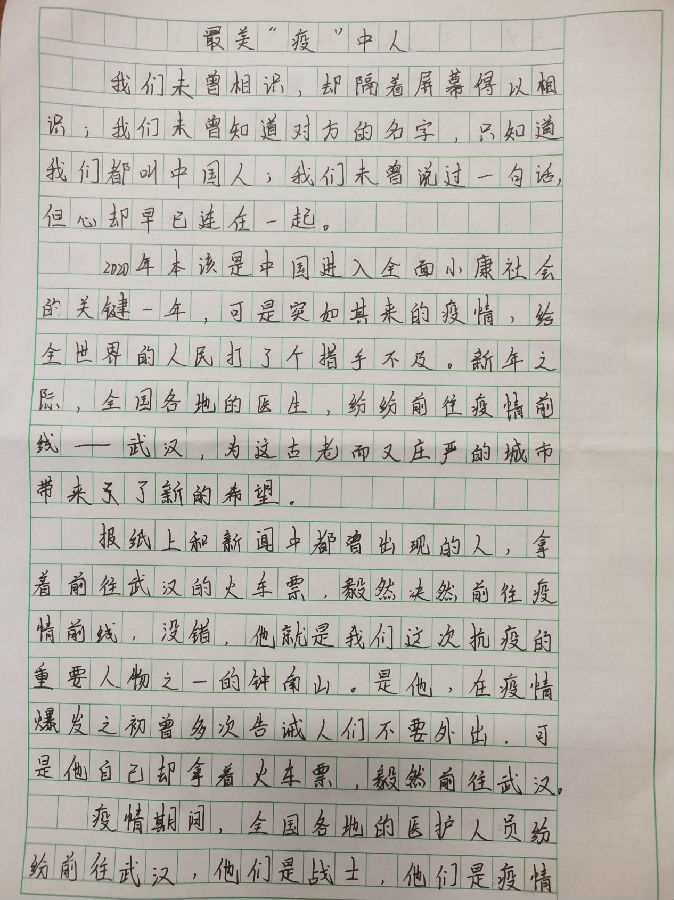 最美“疫”中人
我们未曾相识，却隔着屏幕得以相
识；我们未曾知道对方的名字，只知道
我们都叫中国人；我们未曾说过一句话，
但心却早已连在一起。
2020年本该是中国进入全面小康社会
的关键一年，可是突如其来的疫情，给
全世界的人民打了个措手不及。新年之
际，全国各地的医生，纷纷前往疫情前
线——武汉，为这古老而又庄严的城市
带来了新的希望。
报纸上和新闻中都曾出现的人，拿
着前往武汉的火车票，毅然决然前往疫
情前线，没错，他就是我们这次抗疫的
重要人物之一的钟南山。是他，在疫情
爆发之初曾多次告诫人们不要外出，可
是他自己却拿着火车票，毅然前往武汉。
疫情期间，全国各地的医护人员纷
纷前往武汉，他们是战士，他们是疫情